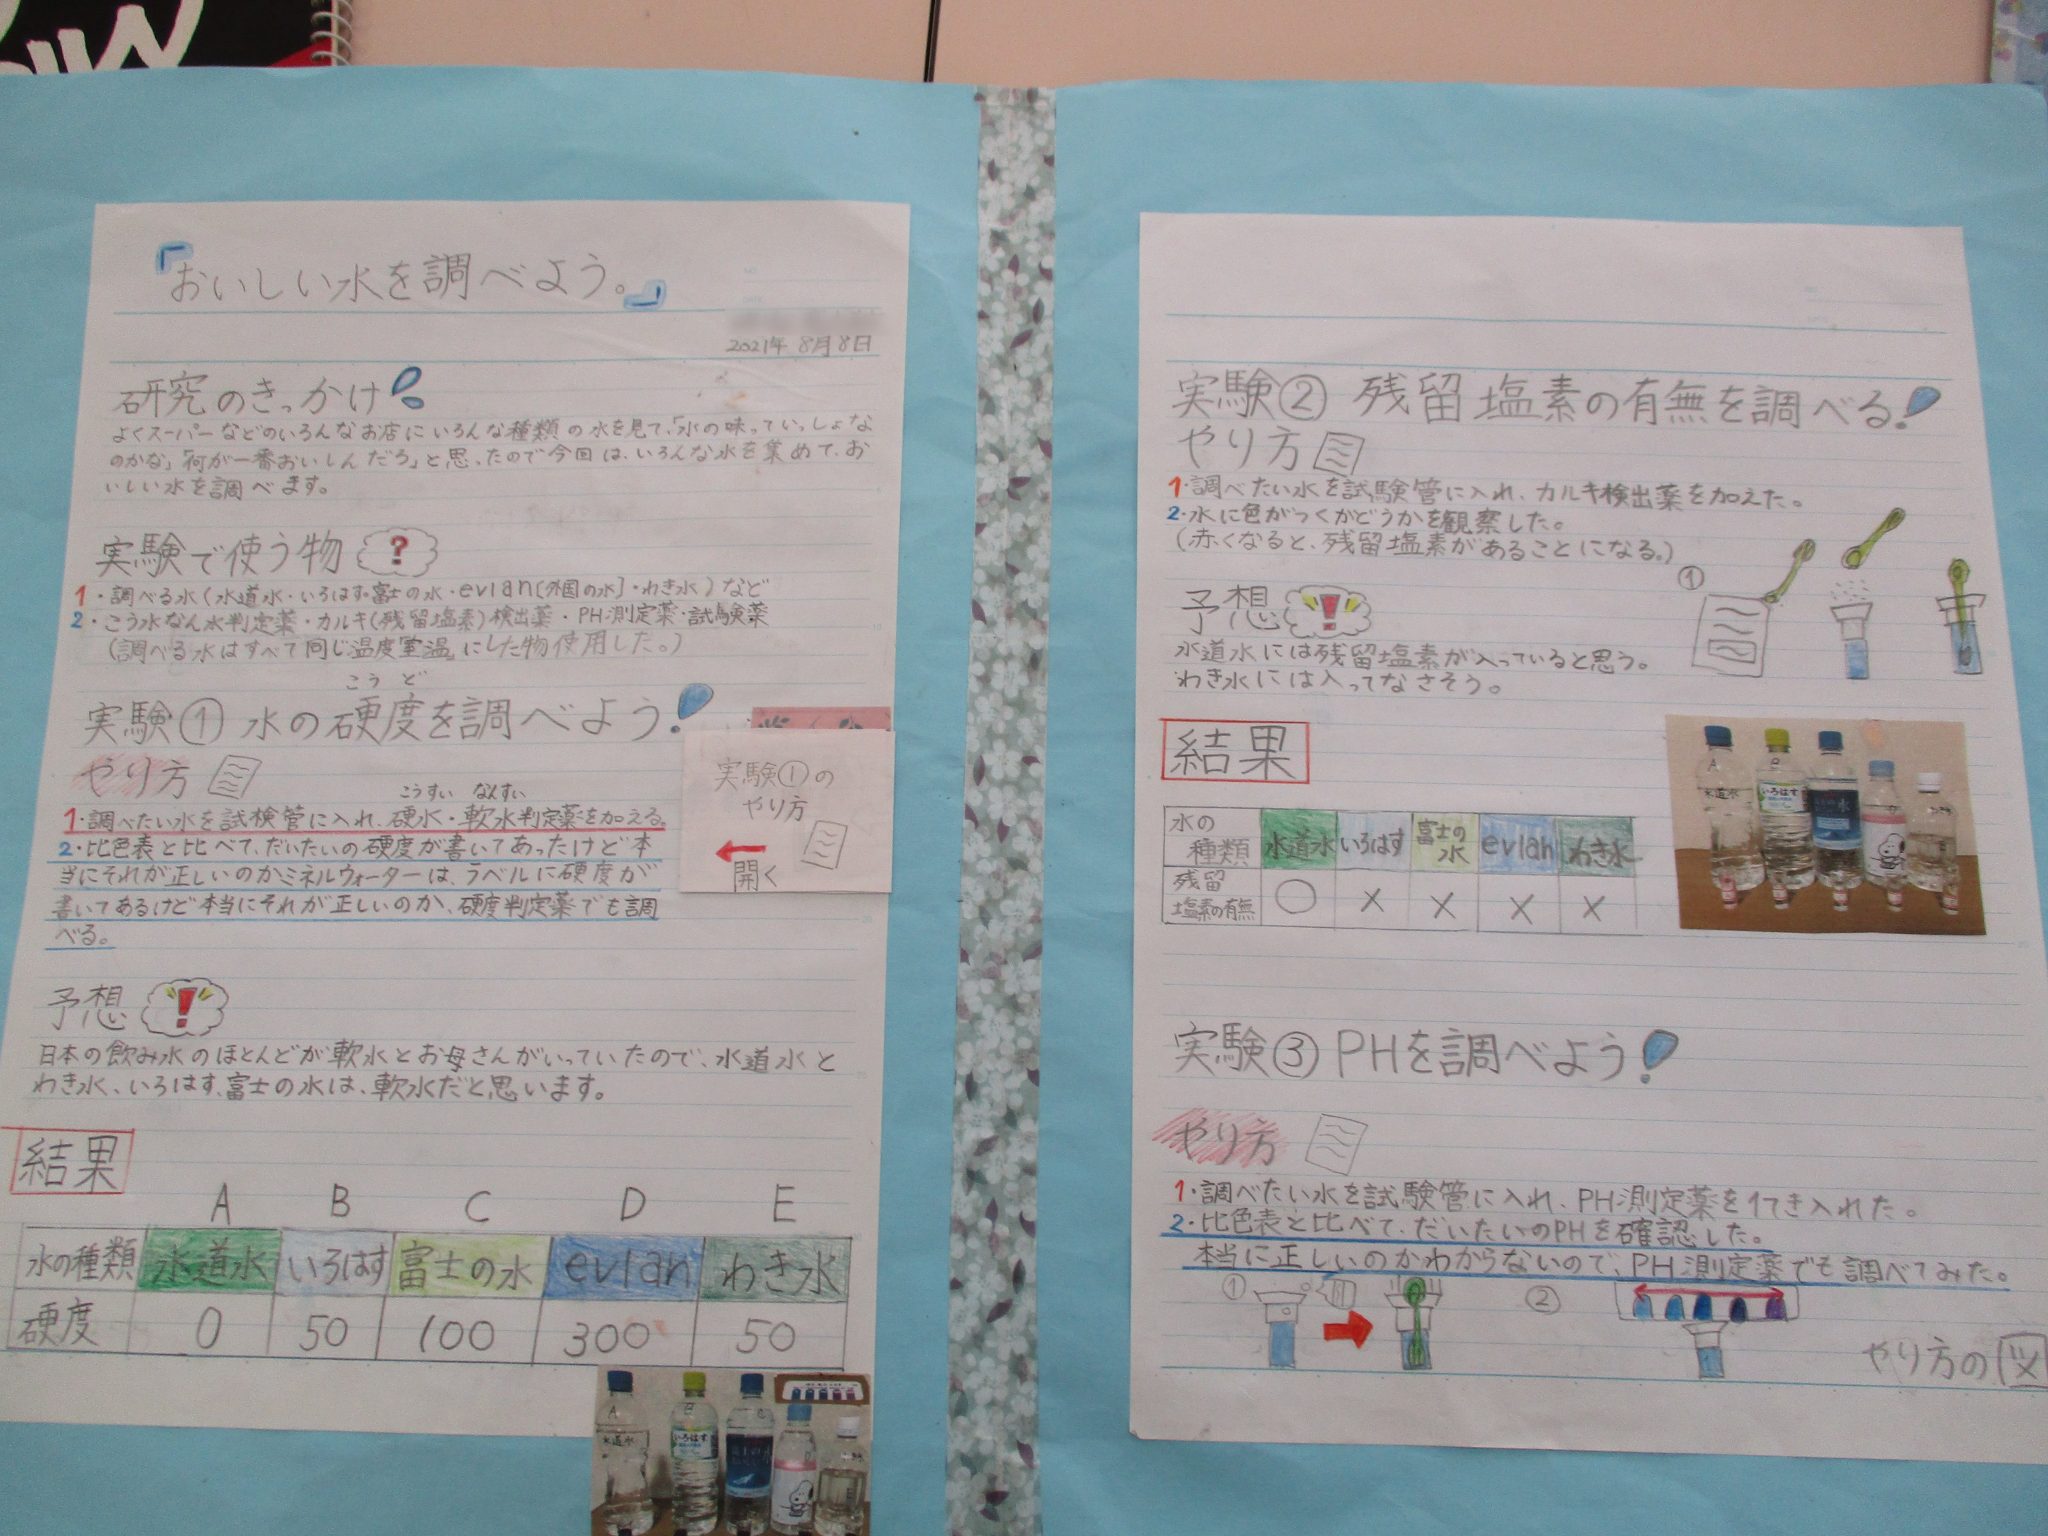 『おいしい水を調べよう。』
2021年 8月8日
研究のきっかけ
よくスーパーなどのいろんなお店にいろんな種類の水を見て、「水の味っていっしょな
のかな」「何が一番おいしんだろ」と思ったので今回は、いろんな水を集めて、お
いしい水を調べます。
実験で使う物 ?
1・調べる水(水道水・いろはす・富士の水・evian[外国の水]・わき水)など
2・こう水なん水判定薬・カルキ(残留塩素)検出薬・PH測定薬・試験薬
(調べる水はすべて同じ温度『室温』にした物使用した。)
こうど
実験① 水の硬度を調べよう!
やり方
こうすい なんすい
1・調べたい水を試検管に入れ、硬水・軟水判定薬を加える。
2・比色表と比べて、だいたいの硬度が書いてあったけど本
当にそれが正しいのかミネルウォーターは、ラベルに硬度が
書いてあるけど本当にそれが正しいのか、硬度判定薬でも調
べる。
実験①の
やり方
開く
予想 !
日本の飲み水のほとんどが軟水とお母さんがいっていたので、水道水と
わき水、いろはす、富士の水は、軟水だと思います。
結果
A B C D E
水の種類 水道水 いろはす 富士の水 evian わき水
硬度 0 50 100 300 50
A B C
水道水 いろはす
実験② 残留塩素の有無を調べる!
やり方
1・調べたい水を試験管に入れ、カルキ検出薬を加えた。
2・水に色がつくかどうかを観察した。
(赤くなると、残留塩素があることになる。)
①
予想 !
水道水には残留塩素が入っていると思う。
わき水には入ってなさそう。
結果
水の
種類 水道水 いろはす 富士の水 evian わき水
残留
塩素の有無 ○ × × × ×
A B
水道水 いろはす 水
実験③ PHを調べよう!
やり方
1・調べたい水を試験管に入れ、PH測定薬を1てき入れた。
2・比色表と比べて、だいたいのPHを確認した。
本当に正しいのかわからないので、PH測定薬でも調べてみた。
① ②
やり方の図